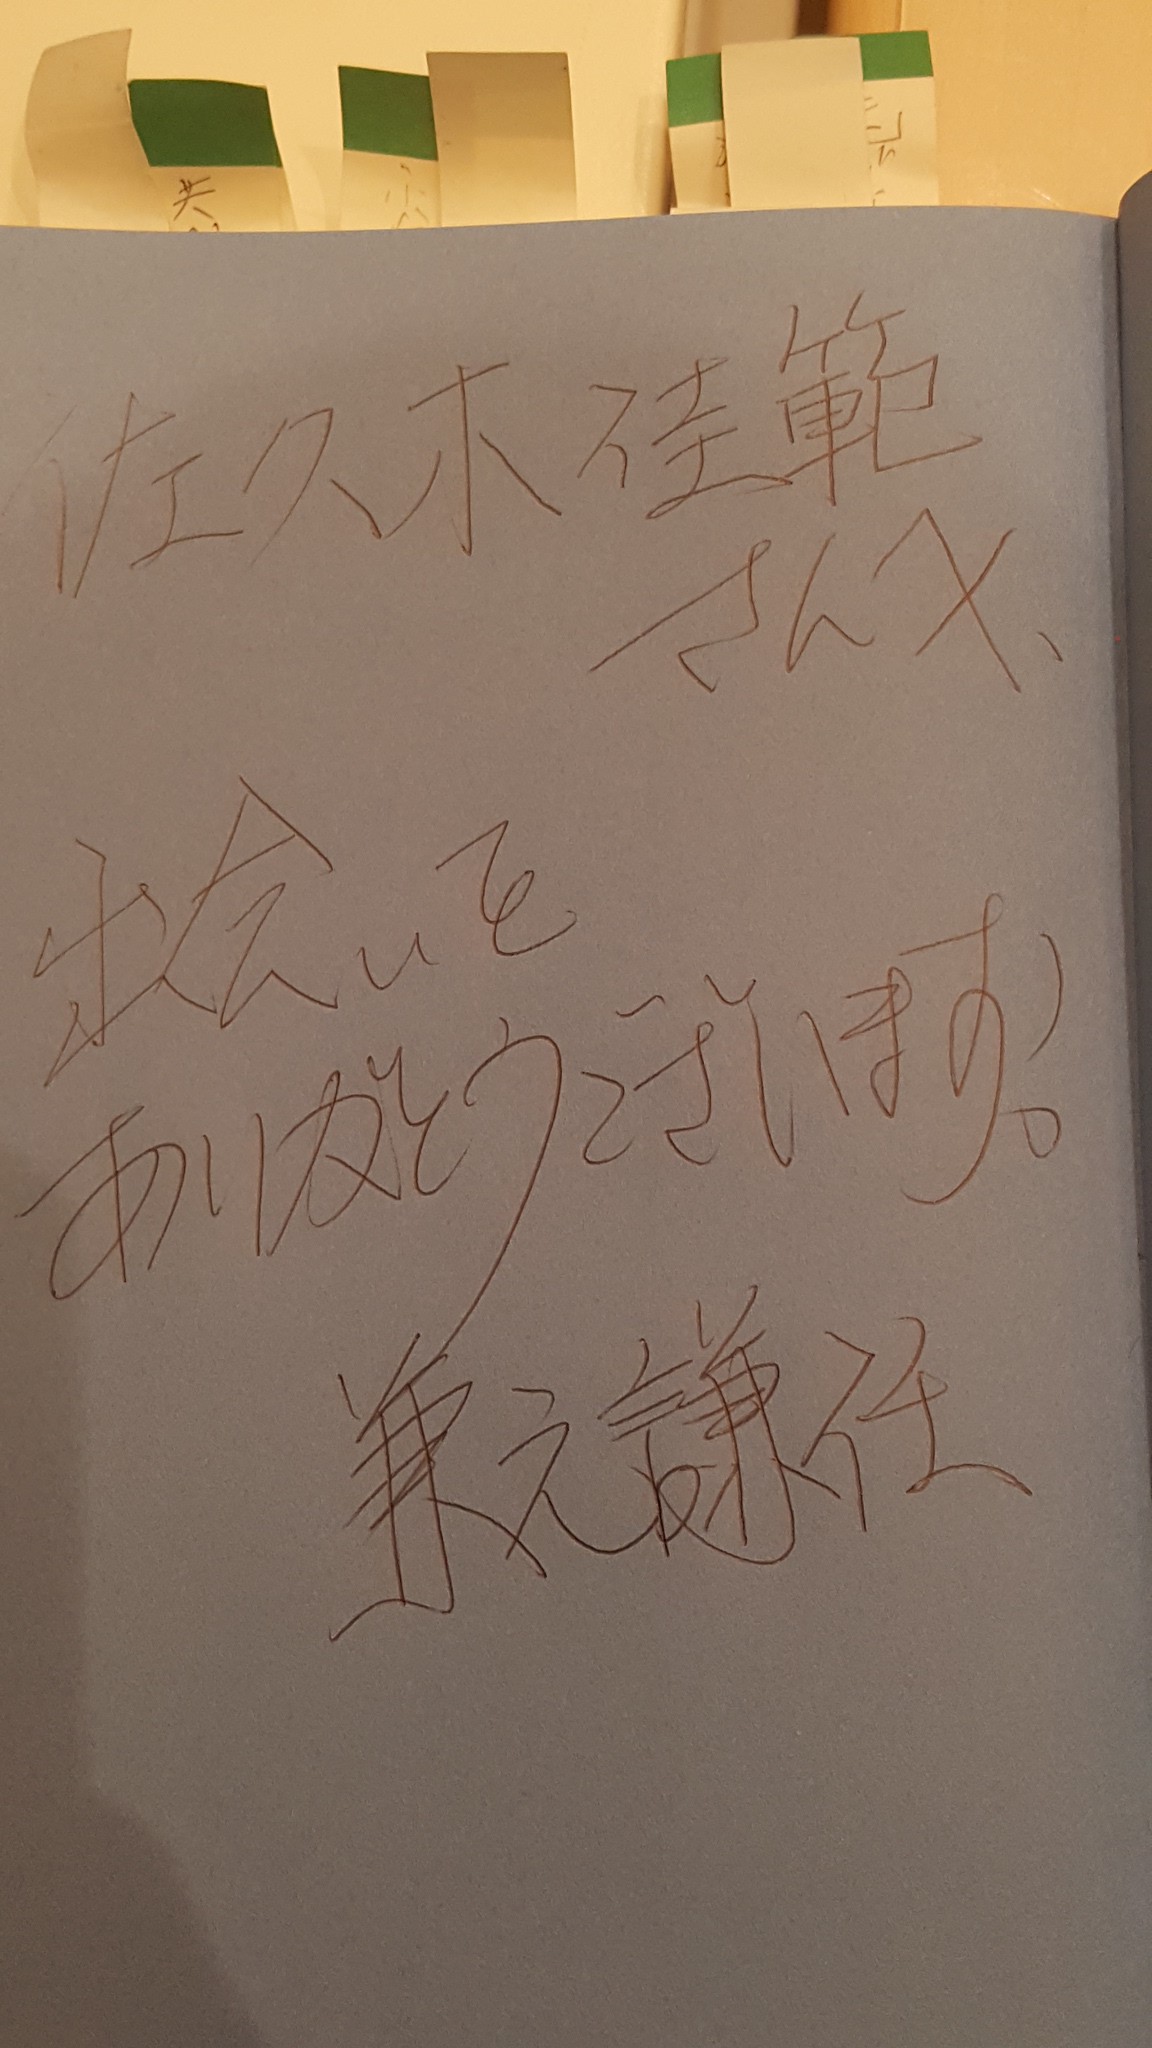 佐久木佳範
さんへ、
出会いを
ありがとうございます。
兼元謙任